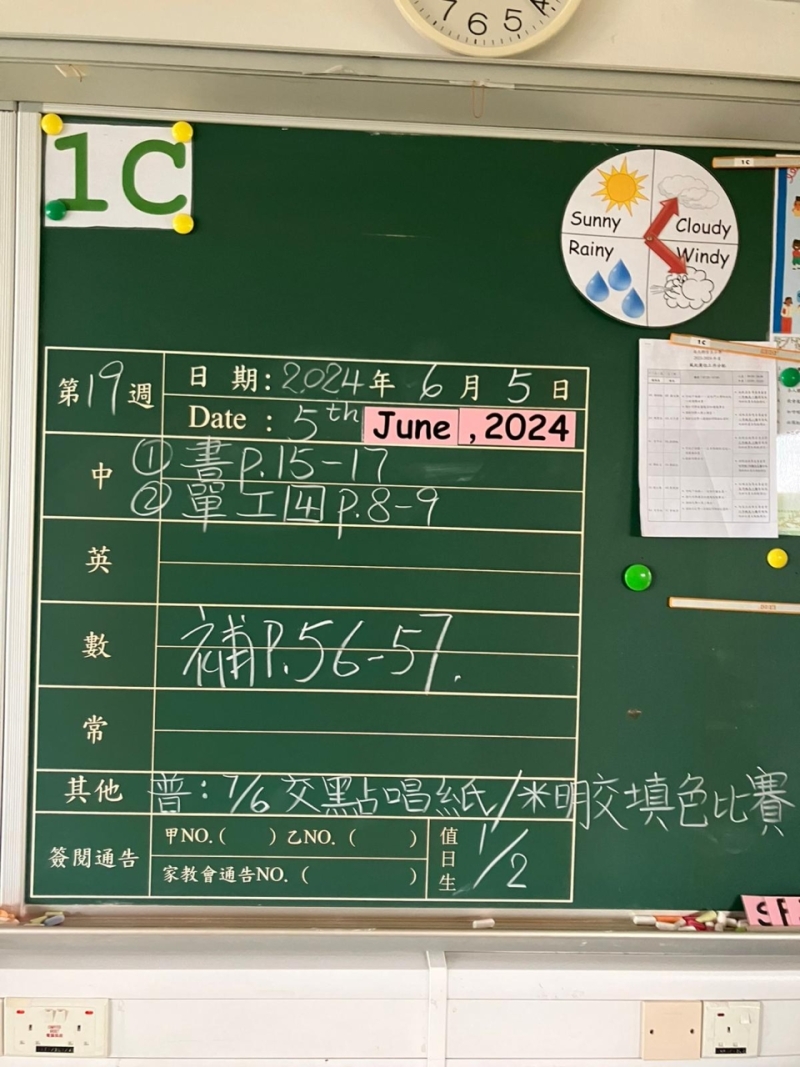 7 6 5 4
1C
Sunny
Cloudy
Rainy
Windy
1C
1C
第19週
日 期：2024年 6 月 5 日
Date : 5th June , 2024
中
① 書P.15-17
② 單工4 P.8-9
英
數
補P.56-57.
常
其他
普：7/6 交點唱紙/*明交填色比賽
簽閱通告
甲NO.( ) 乙NO. ( )
家教會通告NO. ( )
值日生
1/2